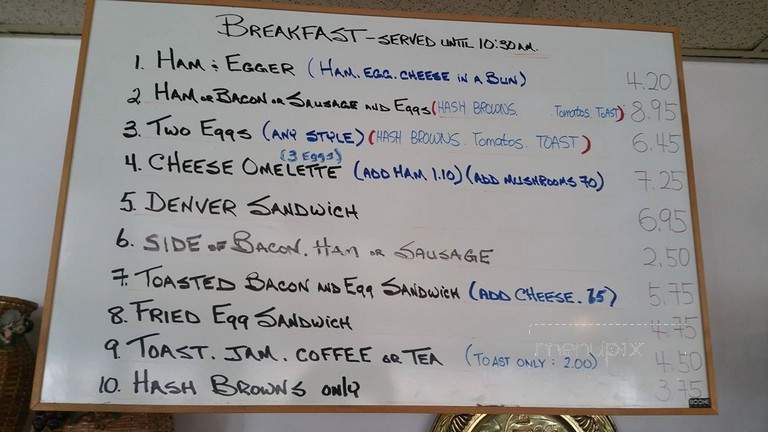 BREAKFAST - SERVED UNTIL 10:30 AM.
1. HAM & EGGER (HAM. EGG. CHEESE IN A BUN) 4.20
2 HAM OR BACON OR SAUSAGE AND EGGS (HASH BROWNS. Tomatos. TOAST) 8.95
3. TWO EGGS (ANY STYLE) (HASH BROWNS. Tomatos. TOAST) 6.45
(3 EGGS)
4. CHEESE OMELETTE (ADD HAM 1.10) (ADD MUSHROOMS 70) 7.25
5. DENVER SANDWICH 6.95
6. SIDE OF BACON. HAM OR SAUSAGE 2.50
7. TOASTED BACON AND EGG SANDWICH (ADD CHEESE .75) 5.75
8. FRIED EGG SANDWICH 4.75
9. TOAST. JAM. COFFEE OR TEA (TOAST ONLY: 2.00) 4.50
10. HASH BROWNS ONLY 3.75
menupix